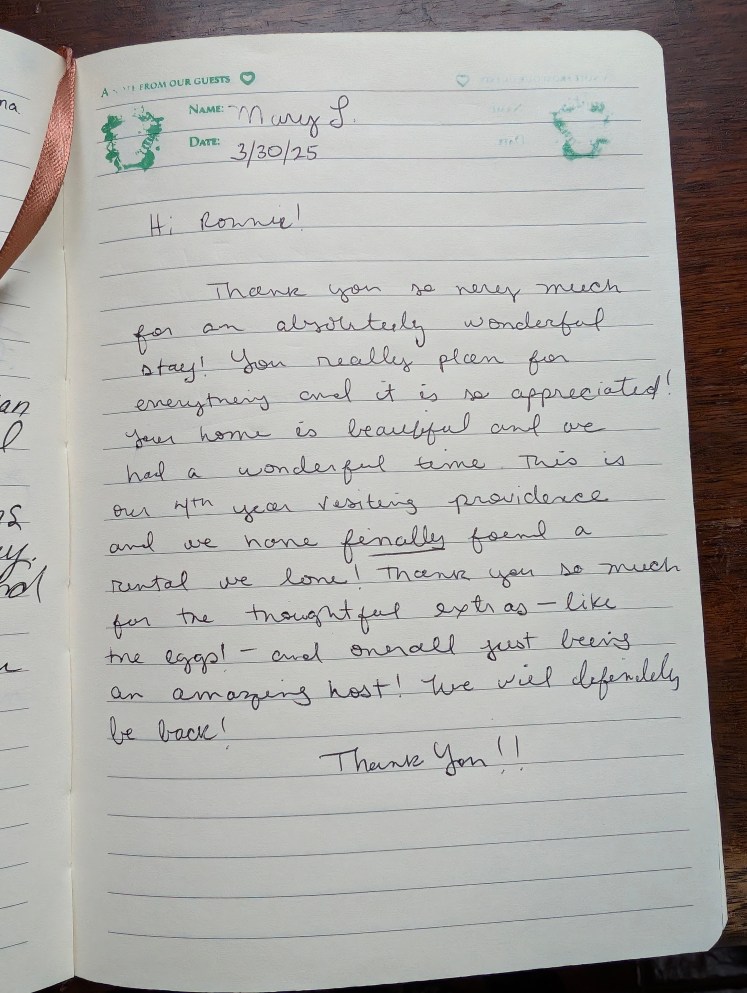 A NOTE FROM OUR GUESTS
NAME: Mary L.
DATE: 3/30/25
Hi Ronnie!
Thank you so very much
for an absolutely wonderful
stay! You really plan for
everything and it is so appreciated!
Your home is beautiful and we
had a wonderful time. This is
our 4th year visiting providence
and we have finally found a
rental we love! Thank you so much
for the thoughtful extras – like
the eggs! – and overall just being
an amazing host! We will definitely
be back!
Thank You!!